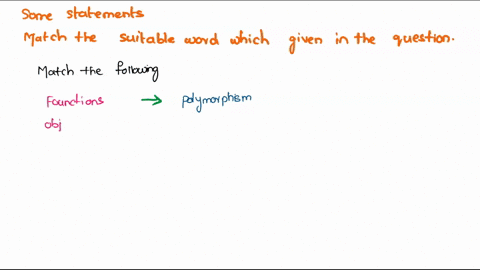 Some statements
Match the suitable word which given in the question.
Match the following
Founctions → polymorphism
obj